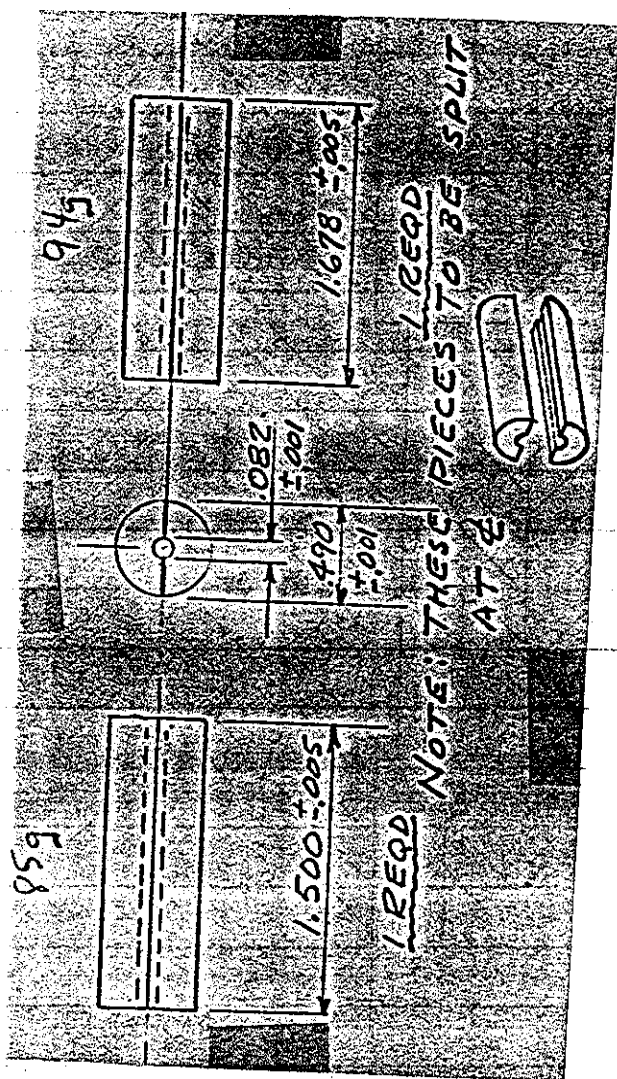 85g
94g
1.500 ±.005
.082
±.001
.490
±.001
1.678 ±.005
1 REQD
1 REQD
NOTE: THESE PIECES TO BE SPLIT
AT ℄